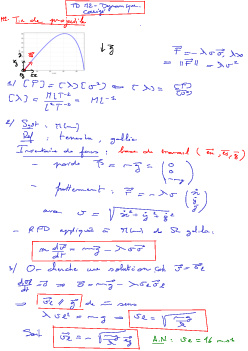 TD M2 - Dynamique
corrigé
M1. Tir de projectile
F⃗ = -λ v v⃗, λ>0
⇒ ||F⃗|| = λv²
1/ [F] = [λ][v²] ⇔ [λ] = [F]/[v²]
[λ] = MLT⁻²/L²T⁻² = ML⁻¹
2/ Syst : M(m)
Réf : terrestre, galiléen
Inventaire de forces : base de travail
- poids P⃗ = m g⃗ = (0 0 -mg)
- frottement : F⃗ = -λ v (ẋ ẏ ż)
avec v = √(ẋ² + ẏ² + ż²)
- RFD appliquée à M(m) de R galiléen :
m dv⃗/dt = m g⃗ - λ v v⃗
3/ On cherche une solution cste v⃗ = v⃗ₑ
dv⃗ₑ/dt = 0⃗ ⇒ 0⃗ = m g⃗ - λ vₑ v⃗ₑ
⇒ v⃗ₑ // g⃗ de même sens
λ vₑ² = m g ⇒ vₑ = √(mg/λ)
Soit
A.N : vₑ = 16 m.s⁻¹